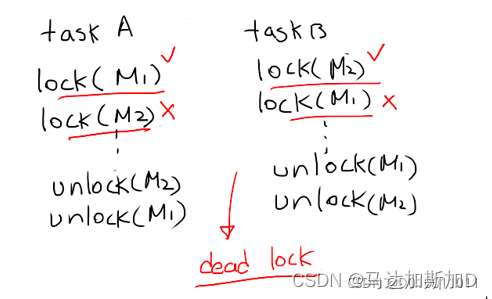 task A
lock(M1) ✓
lock(M2) ×
unlock(M2)
unlock(M1)
task B
lock(M2) ✓
lock(M1) ×
unlock(M1)
unlock(M2)
dead lock
CSDN @马达加斯加D